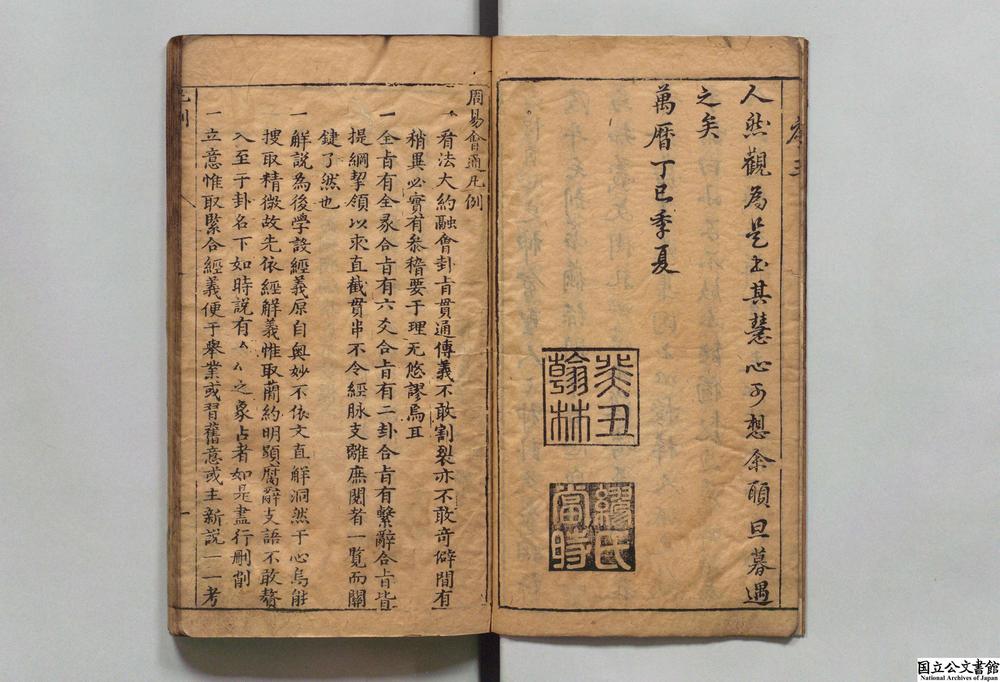 序 三
人然觀為是書其慧心可想余願旦暮遇
之矣
萬曆丁巳季夏
癸丑翰林
繆氏當時
周易會通凡例
一看法大約融會卦旨貫通傳義不敢割裂亦不敢奇僻間有
稍異必實有叅稽要于理无悠謬焉耳
一全旨有全彖合旨有六爻合旨有二卦合旨有繫辭合旨皆
提綱挈領以來直截貫串不令經脉支離庶閱者一覽而關
鍵了然也
一解說為後學設經義原自奥妙不依文直解洞然于心烏能
搜取精微故先依經解義惟取蕳約明顯腐辭支語不敢贅
入至于卦名下如時說有〻〻之象占者如是盡行刪削
一立意惟取緊合經義便于舉業或習舊意或主新說一一考
凡例
一
国立公文書館
National Archives of Japan